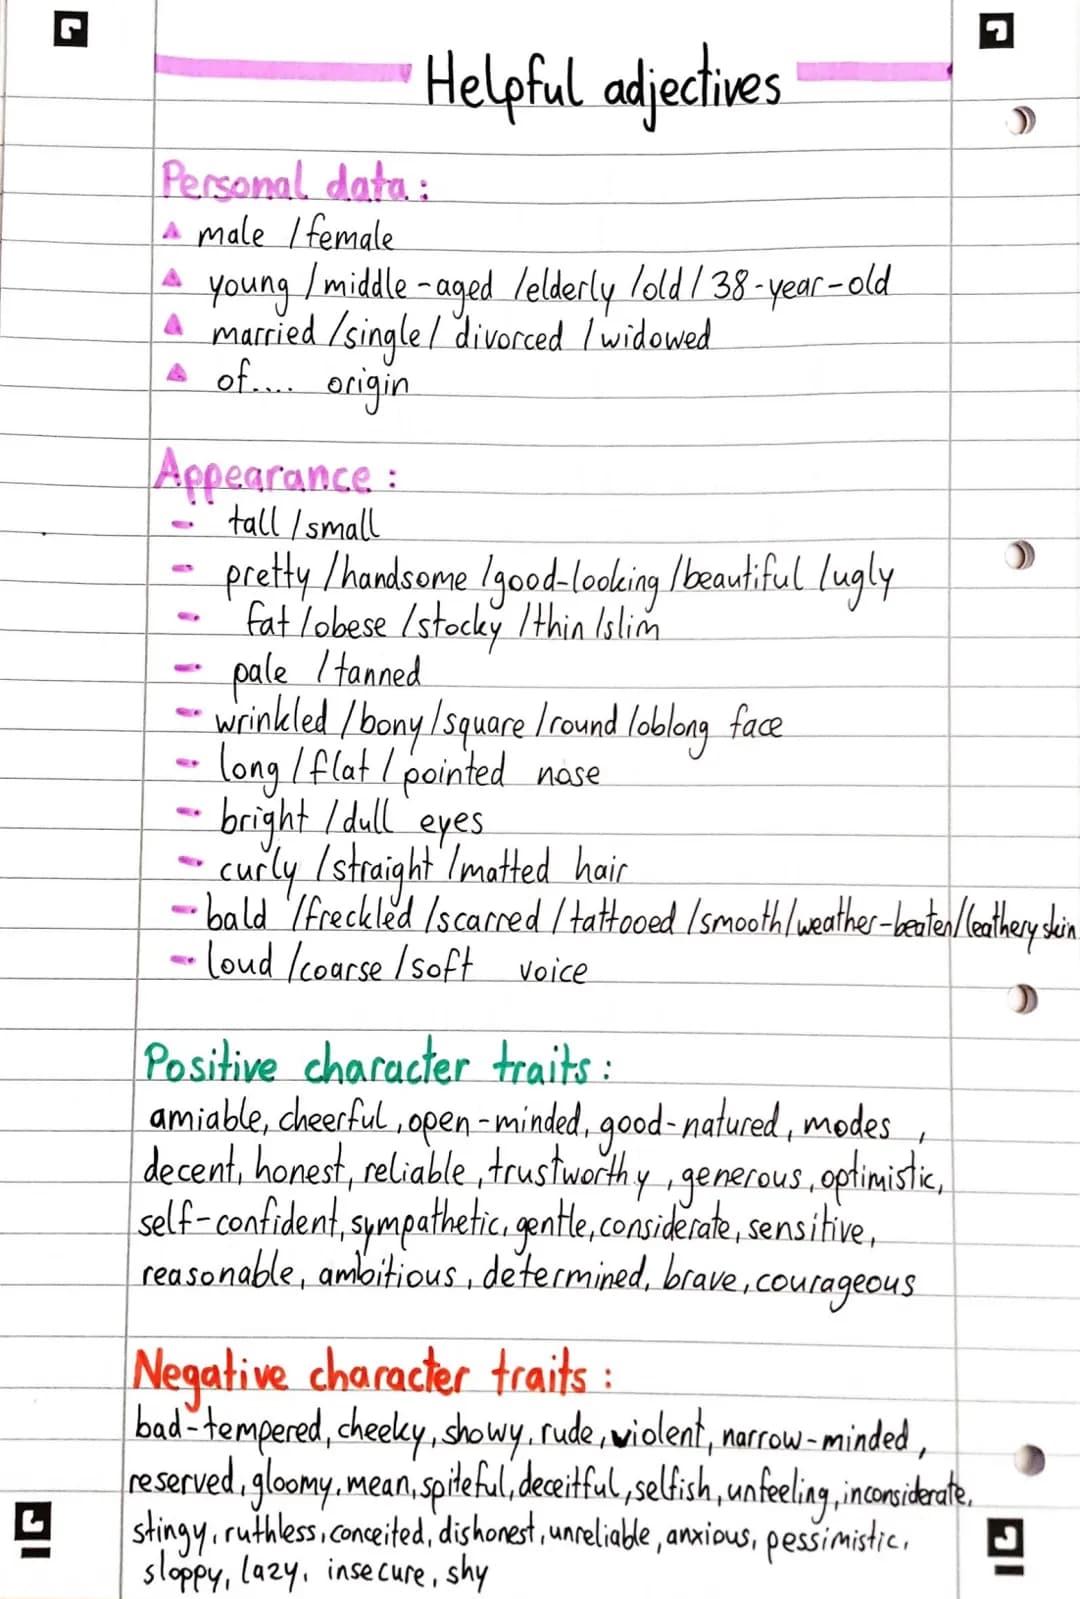 Helpful adjectives
Personal data:
male / female
young / middle-aged / elderly / old / 38-year-old
married / single / divorced / widowed
of.... origin
Appearance:
- tall / small
- pretty / handsome / good-looking / beautiful / ugly
- fat / obese / stocky / thin / slim
- pale / tanned
- wrinkled / bony / square / round / oblong face
- long / flat / pointed nose
- bright / dull eyes
- curly / straight / matted hair
- bald / freckled / scarred / tattooed / smooth / weather-beaten / leathery skin
- loud / coarse / soft voice
Positive character traits:
amiable, cheerful, open-minded, good-natured, modes ,
decent, honest, reliable, trustworthy, generous, optimistic,
self-confident, sympathetic, gentle, considerate, sensitive,
reasonable, ambitious, determined, brave, courageous
Negative character traits:
bad-tempered, cheeky, showy, rude, violent, narrow-minded,
reserved, gloomy, mean, spiteful, deceitful, selfish, unfeeling, inconsiderate,
stingy, ruthless, conceited, dishonest, unreliable, anxious, pessimistic,
sloppy, lazy, insecure, shy